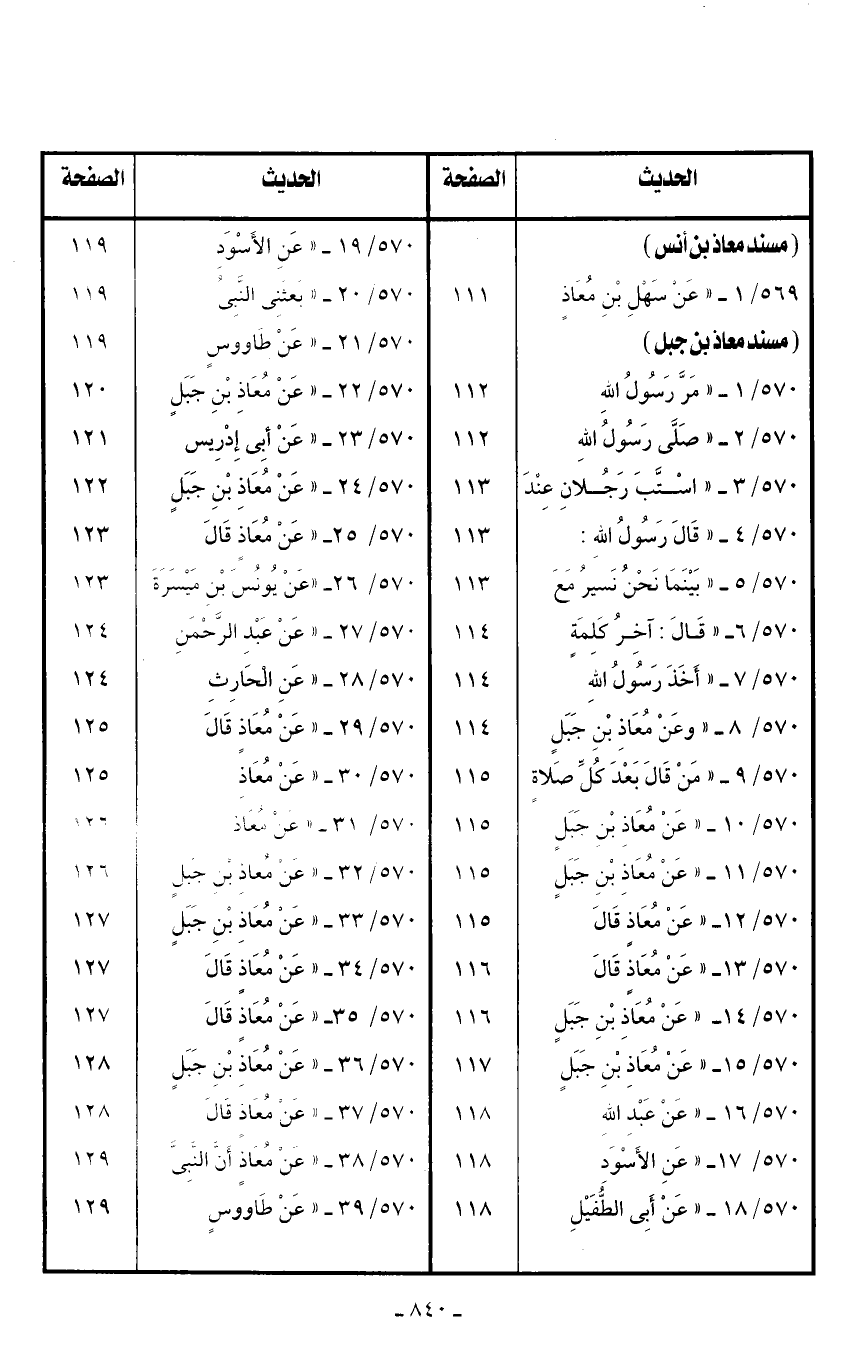 الحديث الصفحة الحديث الصفحة
(مسند معاذ بن أنس)
٥٦٩/ ١ ـ « عَنْ سَهْلِ بْنِ مُعَاذٍ ١١١
(مسند معاذ بن جبل)
٥٧٠/ ١ ـ « مَرَّ رَسُولُ اللهِ ١١٢
٥٧٠/ ٢ ـ « صَلَّى رَسُولُ اللهِ ١١٢
٥٧٠/ ٣ ـ « اسْتَّبَ رَجُلانِ عِنْدَ ١١٣
٥٧٠/ ٤ ـ « قَالَ رَسُولُ اللهِ : ١١٣
٥٧٠/ ٥ ـ « بَيْنَمَا نَحْنُ نَسيرُ مَعَ ١١٣
٥٧٠/ ٦ـ « قَالَ : آخِرُ كَلِمَةٍ ١١٤
٥٧٠/ ٧ ـ « أَخَذَ رَسُولُ اللهِ ١١٤
٥٧٠/ ٨ ـ « وعَنْ مُعَاذِ بْنِ جَبَلٍ ١١٤
٥٧٠/ ٩ ـ « مَنْ قَالَ بَعْدَ كُلِّ صَلاةٍ ١١٥
٥٧٠/ ١٠ ـ « عَنْ مُعَاذِ بْنِ جَبَلٍ ١١٥
٥٧٠/ ١١ ـ « عَنْ مُعَاذِ بْنِ جَبَلٍ ١١٥
٥٧٠/ ١٢ـ « عَنْ مُعَاذٍ قَالَ ١١٥
٥٧٠/ ١٣ـ « عَنْ مُعَاذٍ قَالَ ١١٦
٥٧٠/ ١٤ـ « عَنْ مُعَاذِ بْنِ جَبَلٍ ١١٦
٥٧٠/ ١٥ـ « عَنْ مُعَاذِ بْنِ جَبَلٍ ١١٧
٥٧٠/ ١٦ ـ « عَنْ عَبْدِ اللهِ ١١٨
٥٧٠/ ١٧ـ « عَنِ الأَسْوَدِ ١١٨
٥٧٠/ ١٨ ـ « عَنْ أَبِى الطُّفَيْلِ ١١٨
٥٧٠/ ١٩ ـ « عَنِ الأَسْوَدِ ١١٩
٥٧٠/ ٢٠ ـ « بَعثَنِى النَّبِىُّ ١١٩
٥٧٠/ ٢١ ـ « عَنْ طَاووسٍ ١١٩
٥٧٠/ ٢٢ ـ « عَنْ مُعَاذِ بْنِ جَبَلٍ ١٢٠
٥٧٠/ ٢٣ ـ « عَنْ أَبِى إِدْرِيس ١٢١
٥٧٠/ ٢٤ ـ « عَنْ مُعَاذِ بْنِ جَبَلٍ ١٢٢
٥٧٠/ ٢٥ـ « عَنْ مُعَاذٍ قَالَ ١٢٣
٥٧٠/ ٢٦ـ «عَنْ يُونُسَ بْنِ مَيْسَرَةَ ١٢٣
٥٧٠/ ٢٧ ـ « عَنْ عَبْدِ الرَّحْمَنِ ١٢٤
٥٧٠/ ٢٨ ـ « عَنِ الْحَارِثِ ١٢٤
٥٧٠/ ٢٩ ـ « عَنْ مُعَاذٍ قَالَ ١٢٥
٥٧٠/ ٣٠ ـ « عَنْ مُعَاذٍ ١٢٥
٥٧٠/ ٣١ ـ « عَنْ مُعَاذ ١٢٦
٥٧٠/ ٣٢ ـ « عَنْ مُعاذِ بْنِ جَبَلٍ ١٢٦
٥٧٠/ ٣٣ ـ « عَنْ مُعَاذِ بْنِ جَبَلٍ ١٢٧
٥٧٠/ ٣٤ ـ « عَنْ مُعَاذٍ قَالَ ١٢٧
٥٧٠/ ٣٥ـ « عَنْ مُعَاذٍ قَالَ ١٢٧
٥٧٠/ ٣٦ ـ « عَنْ مُعَاذِ بْنِ جَبَلٍ ١٢٨
٥٧٠/ ٣٧ ـ « عَنْ مُعَاذٍ قَالَ ١٢٨
٥٧٠/ ٣٨ ـ « عَنْ مُعَاذٍ أَنَّ النَّبِىَّ ١٢٩
٥٧٠/ ٣٩ ـ « عَنْ طَاووسٍ ١٢٩
ـ ٨٤٠ ـ